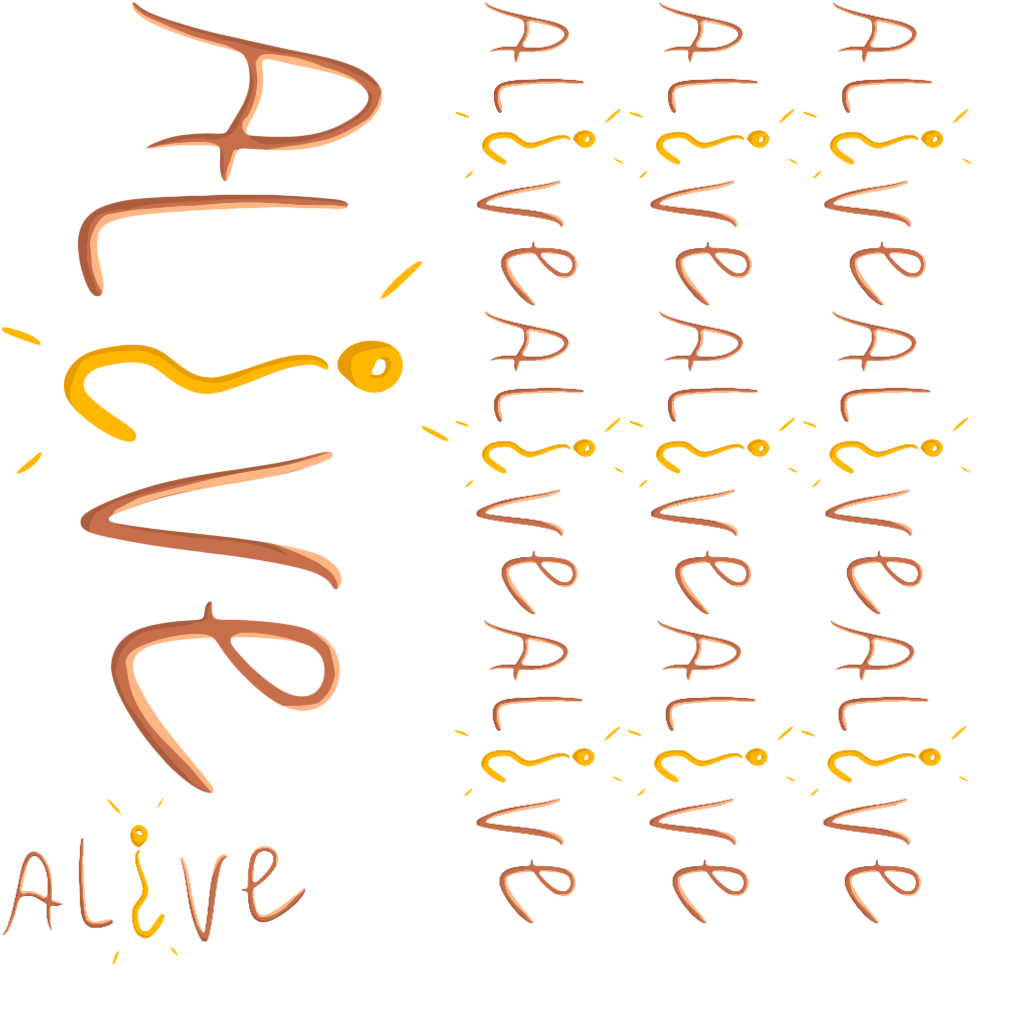 ALive
ALive
ALive ALive ALive
ALive ALive ALive
ALive ALive ALive